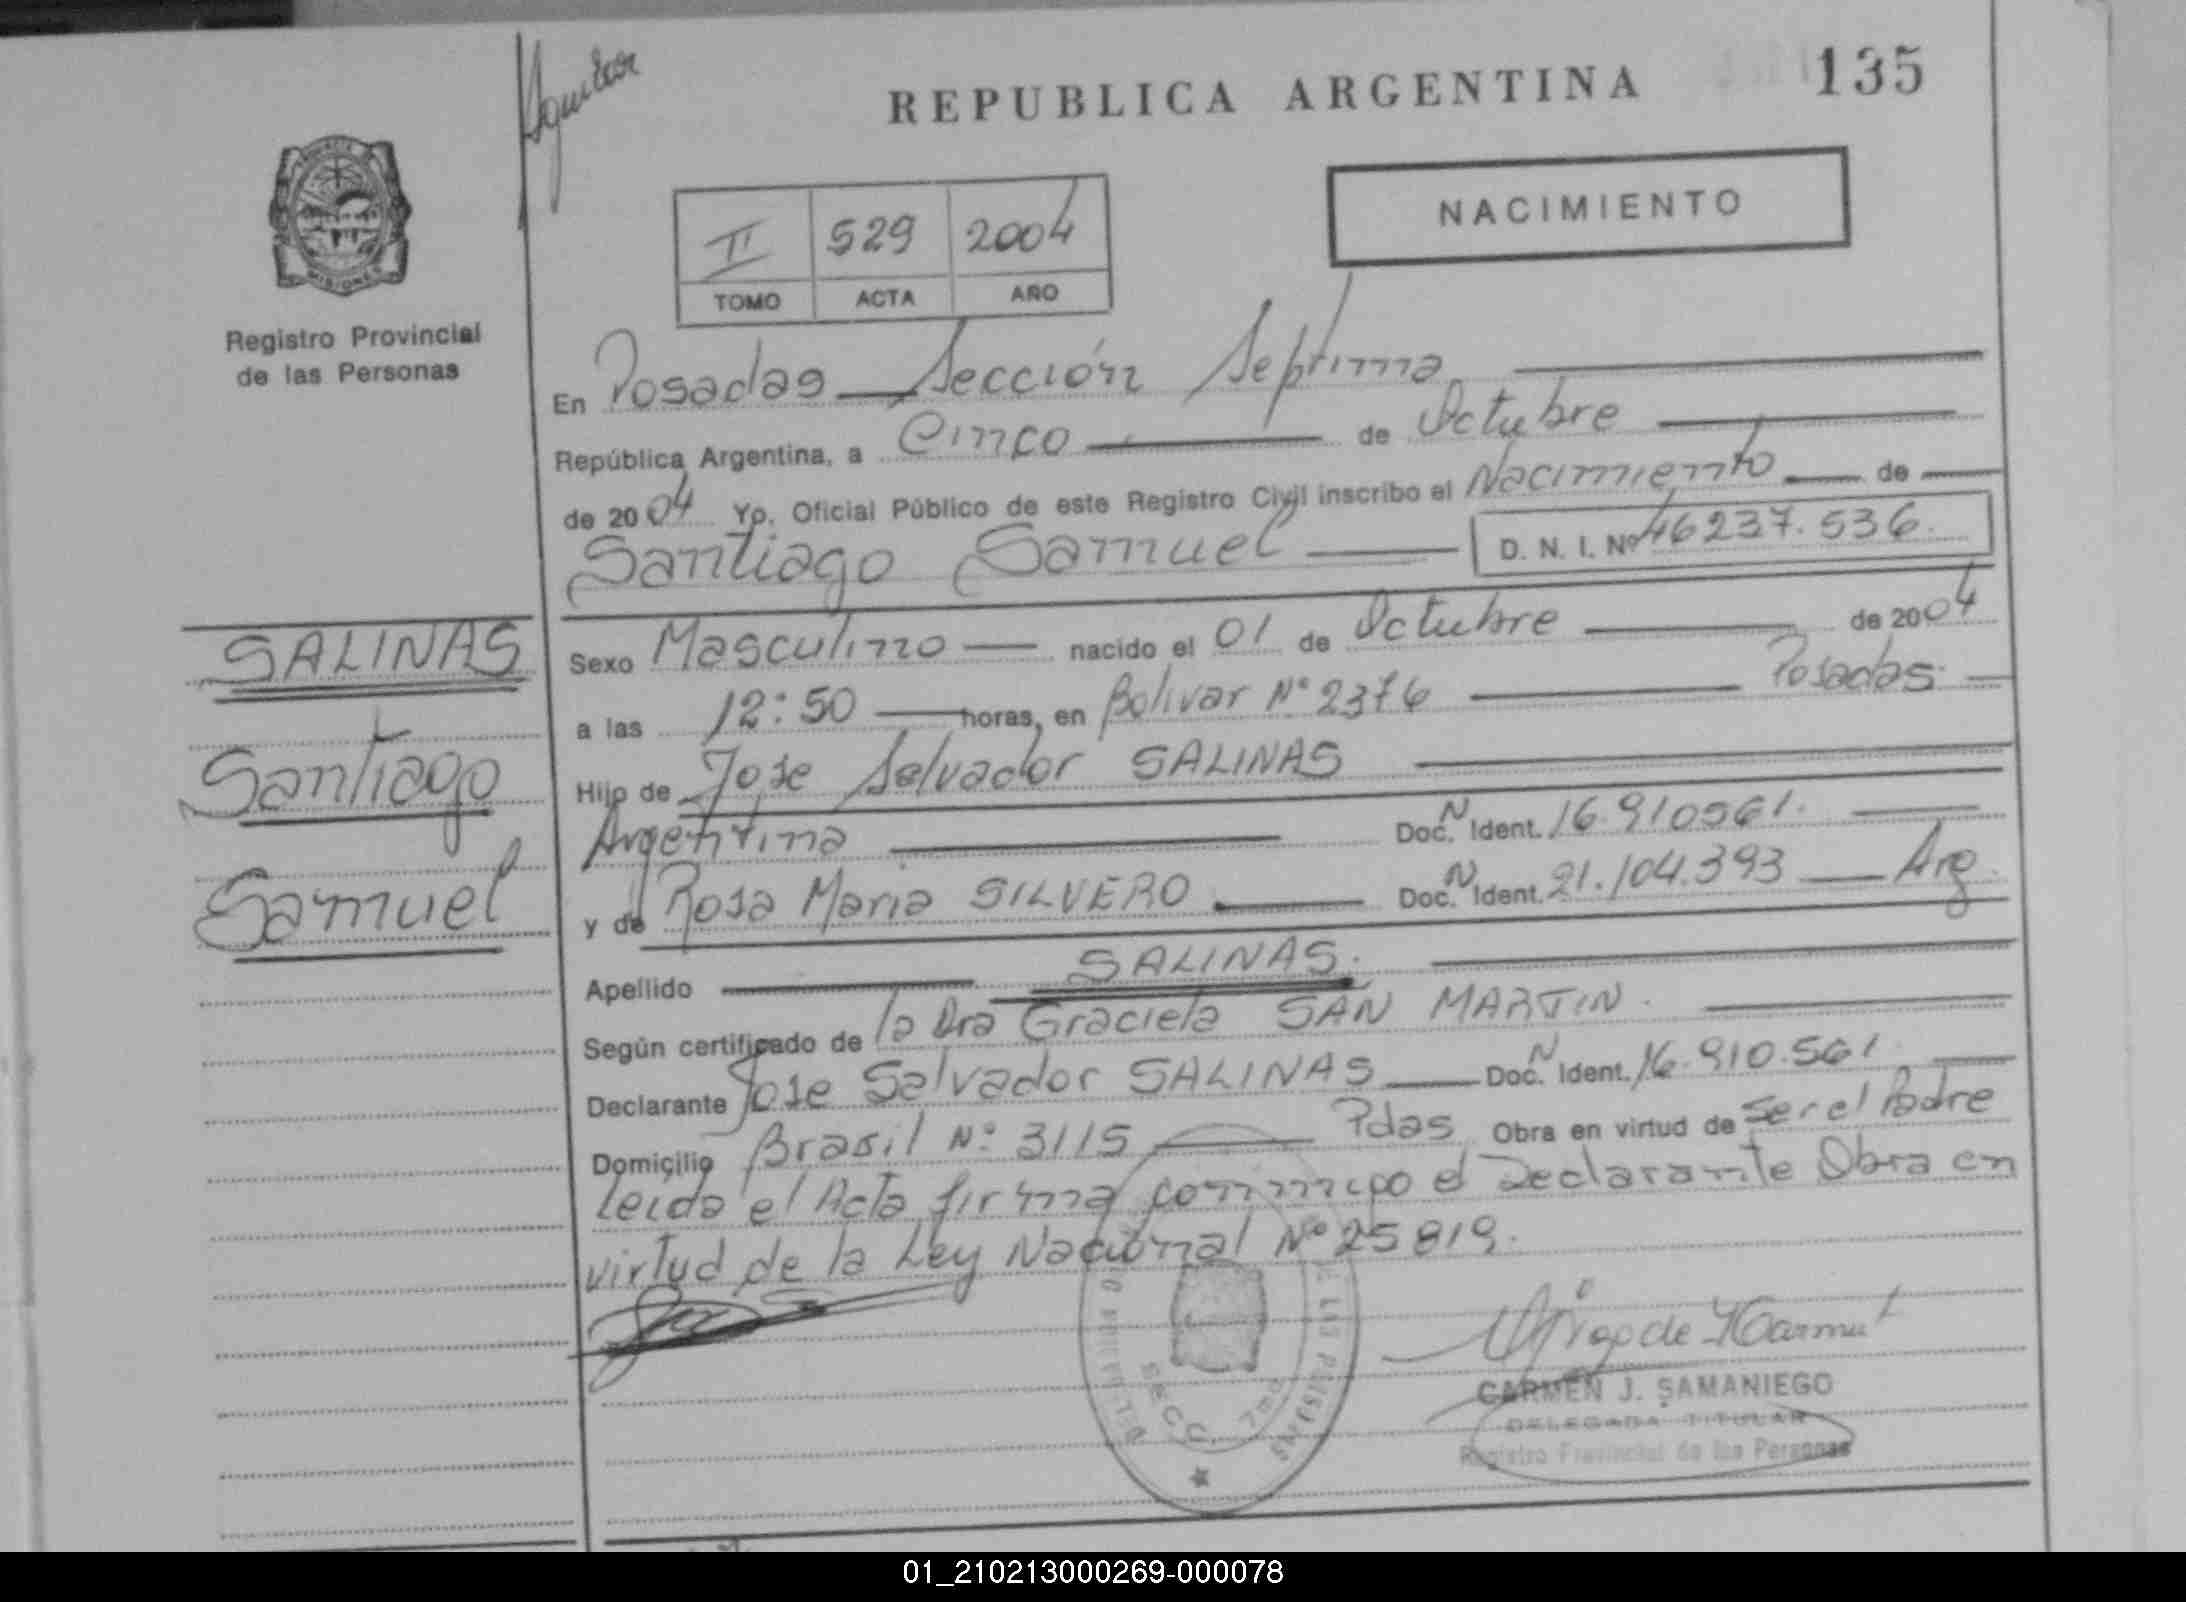 Aguilar
REPUBLICA ARGENTINA
135
PROVINCIA DE
MISIONES
Registro Provincial
de las Personas
II 529 2004
TOMO ACTA AÑO
NACIMIENTO
En Posadas Sección Septima
República Argentina, a Cinco de Octubre
de 2004 Yo, Oficial Público de este Registro Civil inscribo el Nacimiento de
Santiago Samuel D. N. I. Nº 46237.536.
SALINAS
Santiago
Samuel
Sexo Masculino nacido el 01 de Octubre de 2004
a las 12:50 horas, en Bolivar Nº 2376 Posadas
Hijo de Jose Salvador SALINAS
Argentina Doc. N Ident. 16.910561.
y de Rosa Maria SILVERO Doc. N Ident. 21.104.393 Arg.
Apellido SALINAS.
Según certificado de la Dra Graciela SAN MARTIN.
Declarante Jose Salvador SALINAS Doc. N Ident. 16.910.561
Domicilio Brasil Nº 3115 Pdas Obra en virtud de Ser el Padre
Leida el Acta firma conmigo el Declarante Obra en
virtud de la Ley Nacional Nº 25819.
DE LAS PERSONAS
SECC.
CARMEN J. SAMANIEGO
DELEGADA TITULAR
Registro Provincial de las Personas
01_210213000269-000078